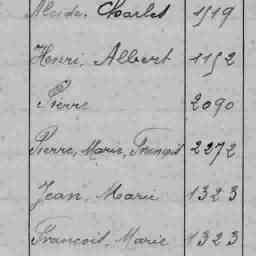 Alcide, Charles 1519
Henri, Albert 1152
Pierre 2090
Pierre, Marie, François 2272
Jean, Marie 1323
François, Marie 1323